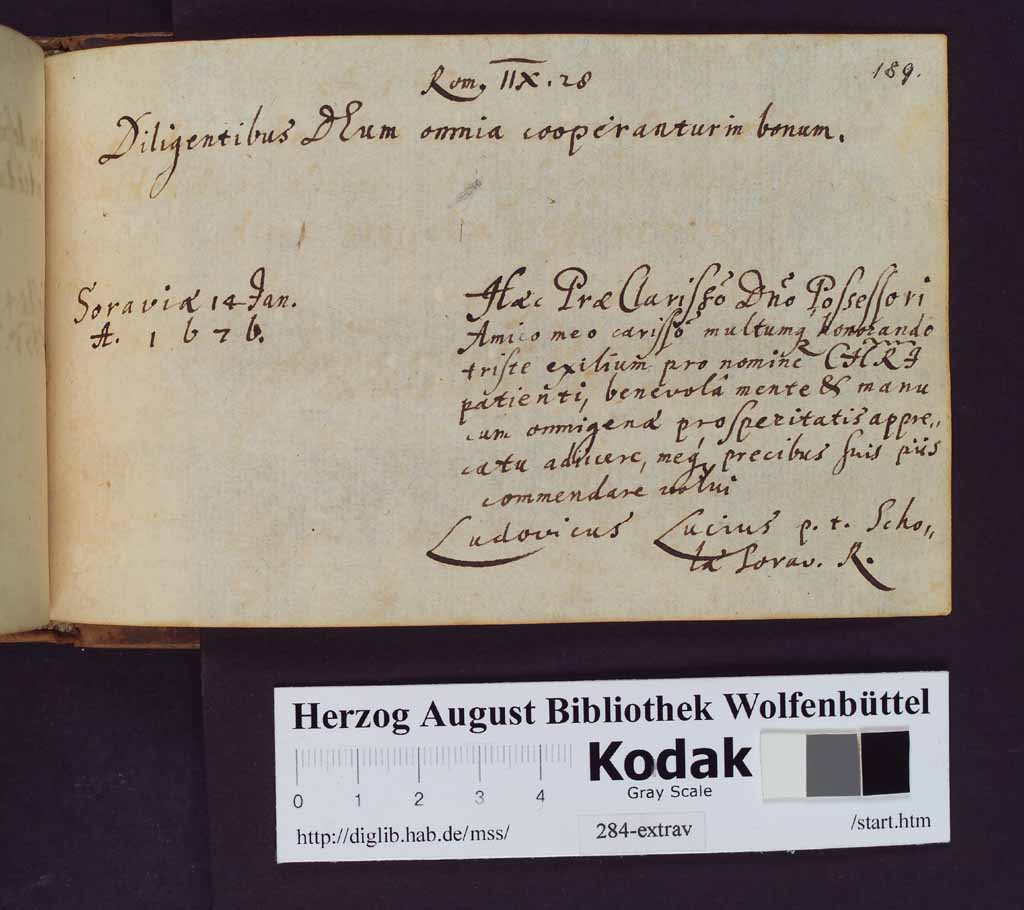 189.
Rom. IIX. 28
Diligentibus DEum omnia cooperantur in bonum.
Soraviæ 14 Jan.
A. 1676.
Hæc Præ Clarissō Dnō Possessori
Amico meo carissō multumq, honorando
triste exilium pro nomine CHRI
patienti, benevolâ mente & manu
cum omnigenæ prosperitatis appre,,
catu adjicere, meq, precibus suis piis
commendare volui
Ludovicus Lucius p. t. Scho,,
læ Sorav. R.
Herzog August Bibliothek Wolfenbüttel
Kodak
Gray Scale
0 1 2 3 4
http://diglib.hab.de/mss/
284-extrav
/start.htm